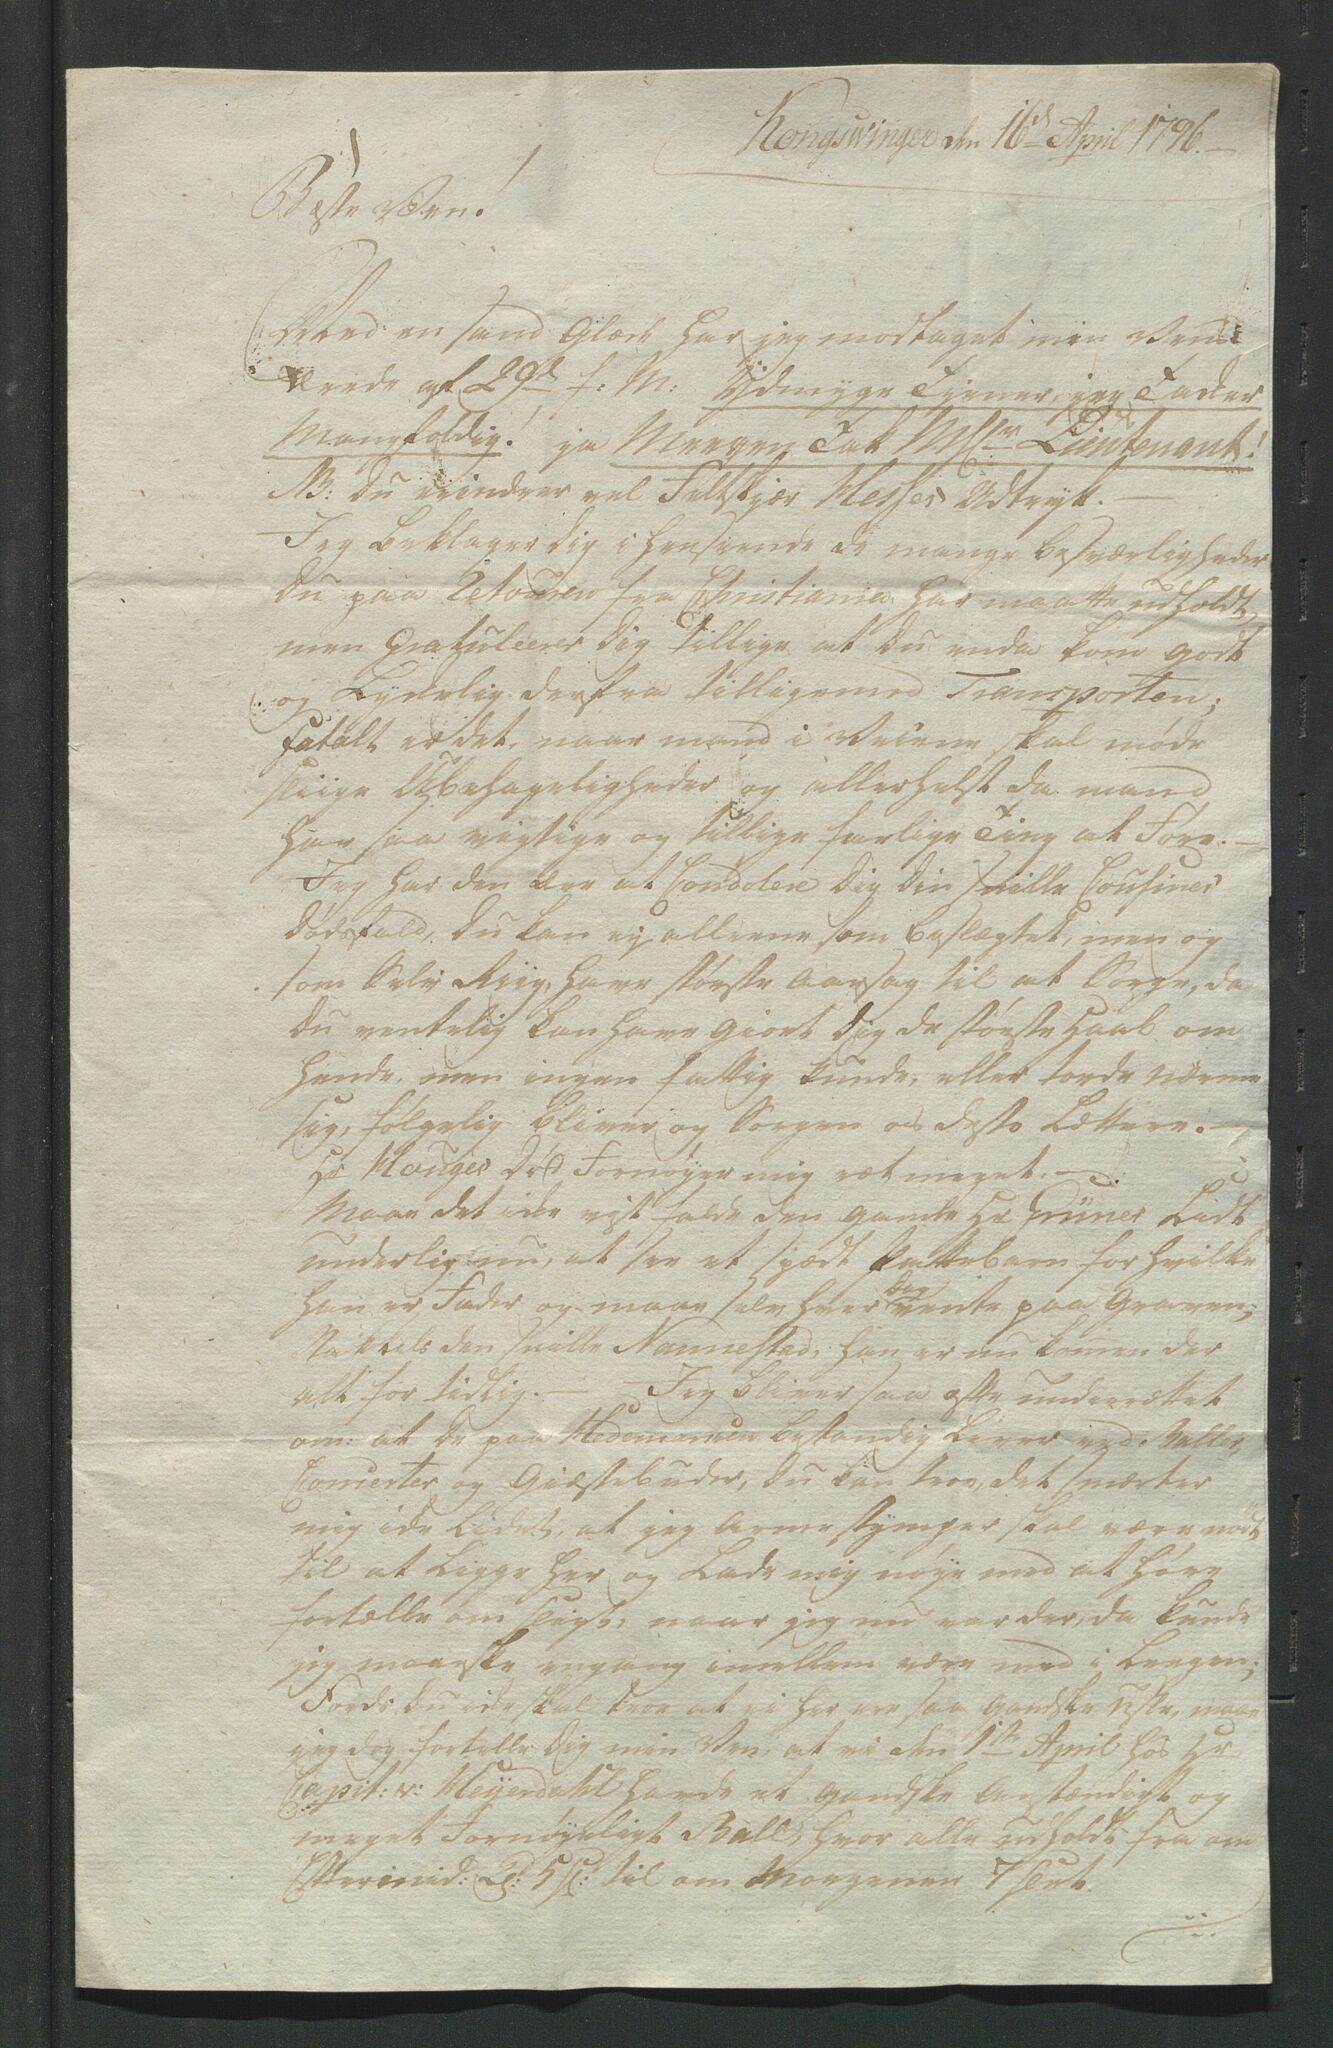 Kongswinger den 16d April 1796.
Bæste Ven!
Med en sand Glæde har jeg modtaget min Vens
ærede af 29d f: M: Ydmyge Tiener, jeg Takker
Mangfoldig! ja Meegen Tak Msier Lieutenant!
NB: du erindrer vel Feltskjær Hesses Udtryk. —
Jeg beklager dig i henseende de mange besværligheder
du paa Retouren fra Christiania har maatte udholdt,
men Gratuleerer dig tillige at du enda kom godt
og Lykkelig derfra tilligemed Transporten;
fatalt er det, naar mand i Veiene skal møde
sliige Ubehageligheder og allerhelst da mand
har saa vigtige og tillige farlige Ting at Føre. —
Jeg har den Ære at Condolere dig din snille Cousines
dødsfald, du kan ej alleene som beslægtet, men og
som Selv Riig, have største Aarsag til at Sørge, da
du ventelig kan have giort dig de største Haab om
hende, men ingen fattig kunde, eller torde nærme
sig, følgelig bliver og Sorgen os desto Lettere. —
Hr Hauges død Fornøyer mig ret meget. —
Maae det ikke vist falde den gamle Hr Grüner Lidt
underlig nu, at see et spædt Pattebarn for hvilke
han er Fader og maae selv hver dag vente paa Graven;
Stakkels den snille Nannestad, han er nu komen der
alt for tidlig. — Jeg bliver saa ofte underrettet
om: at De paa Hedemarken bestandig Lever ved Baller,
Concerter og Giæstebuder, du kan troe, det smerter
mig ikke Lidet, at jeg Arme stymper skal være nødt
til at Ligge her og Lade mig nøye med at høre
fortælle om sligt, naar jeg nu var der, da kunde
jeg maaske engang imellem være med i Leegen;
Fordi du ikke skal troe at vi her ere saa gandske Øde, maae
jeg dog fortelle dig min Ven, at vi den 1te April hos Hr
Capit: v: Heyerdahl havde et gandske Anstændigt og
meget Fornøyeligt Ball, hvor alle udholdt fra om
Eftermid: Kl: 5 sl: til om Morgenen 7 slet.